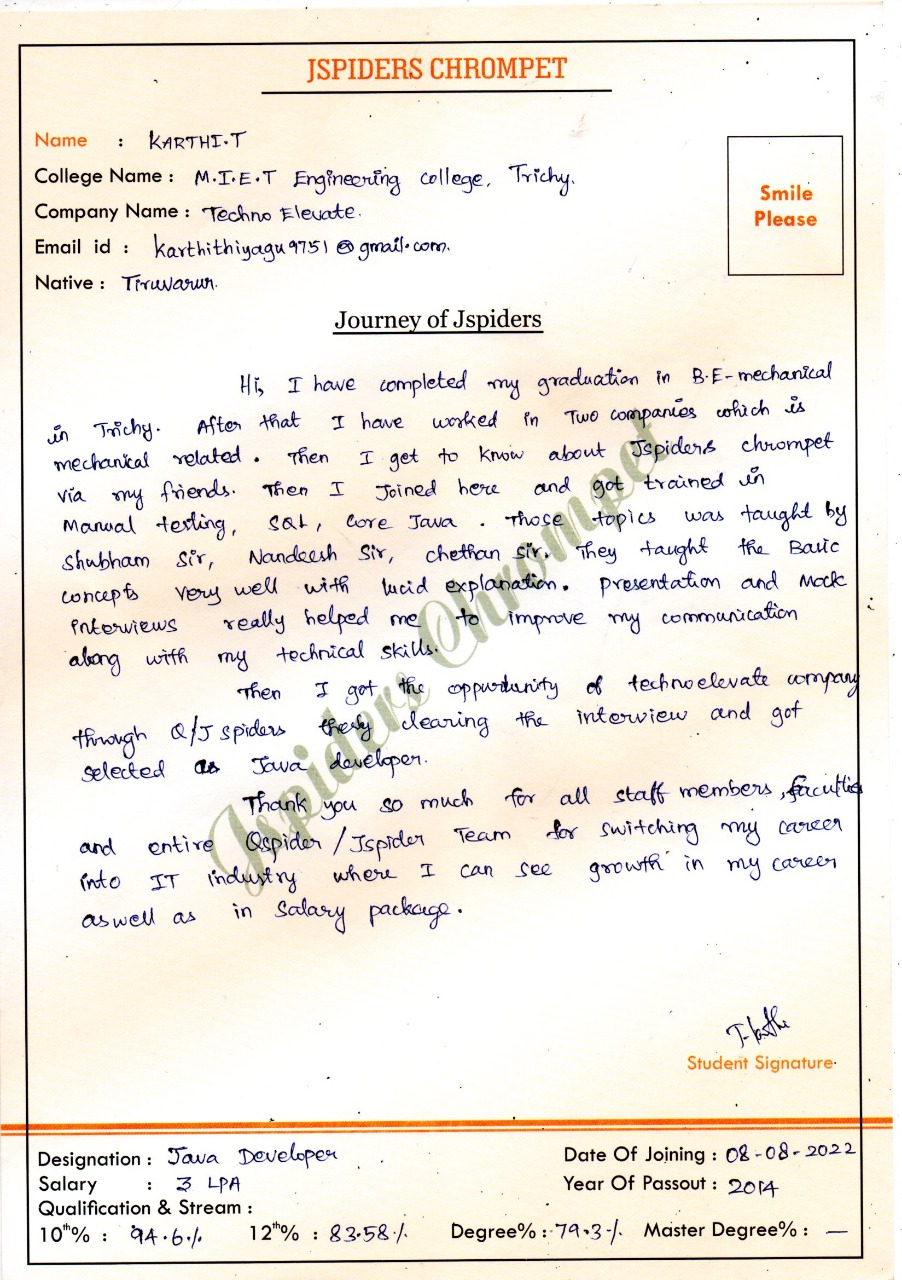 JSPIDERS CHROMPET
Name : KARTHI.T
College Name : M.I.E.T Engineering college, Trichy.
Company Name : Techno Elevate.
Email id : karthithiyagu9751@gmail.com.
Native : Tiruvarur.
Smile
Please
Journey of Jspiders
Hi, I have completed my graduation in B.E-mechanical
in Trichy. After that I have worked in Two companies which is
mechanical related. Then I get to know about Jspiders chrompet
via my friends. Then I Joined here and got trained in
Manual testing, SQL, Core Java. Those topics was taught by
Shubham Sir, Nandeesh Sir, chethan sir. They taught the Basic
concepts very well with lucid explanation. presentation and Mock
interviews really helped me to improve my communication
along with my technical skills.
Then I got the oppurtunity of technoelevate company
through Q/J spiders clearing the interview and got
selected as Java developer.
Thank you so much for all staff members, faculties
and entire Qspider/Jspider Team for switching my career
into IT industry where I can see growth in my career
aswell as in Salary package.
Jspiders Chrompet
T-Karthi
Student Signature
Designation : Java Developer Date Of Joining : 08-08-2022
Salary : 3 LPA Year Of Passout : 2014
Qualification & Stream :
10th% : 94.6% 12th% : 83.58% Degree% : 79.3% Master Degree% : —